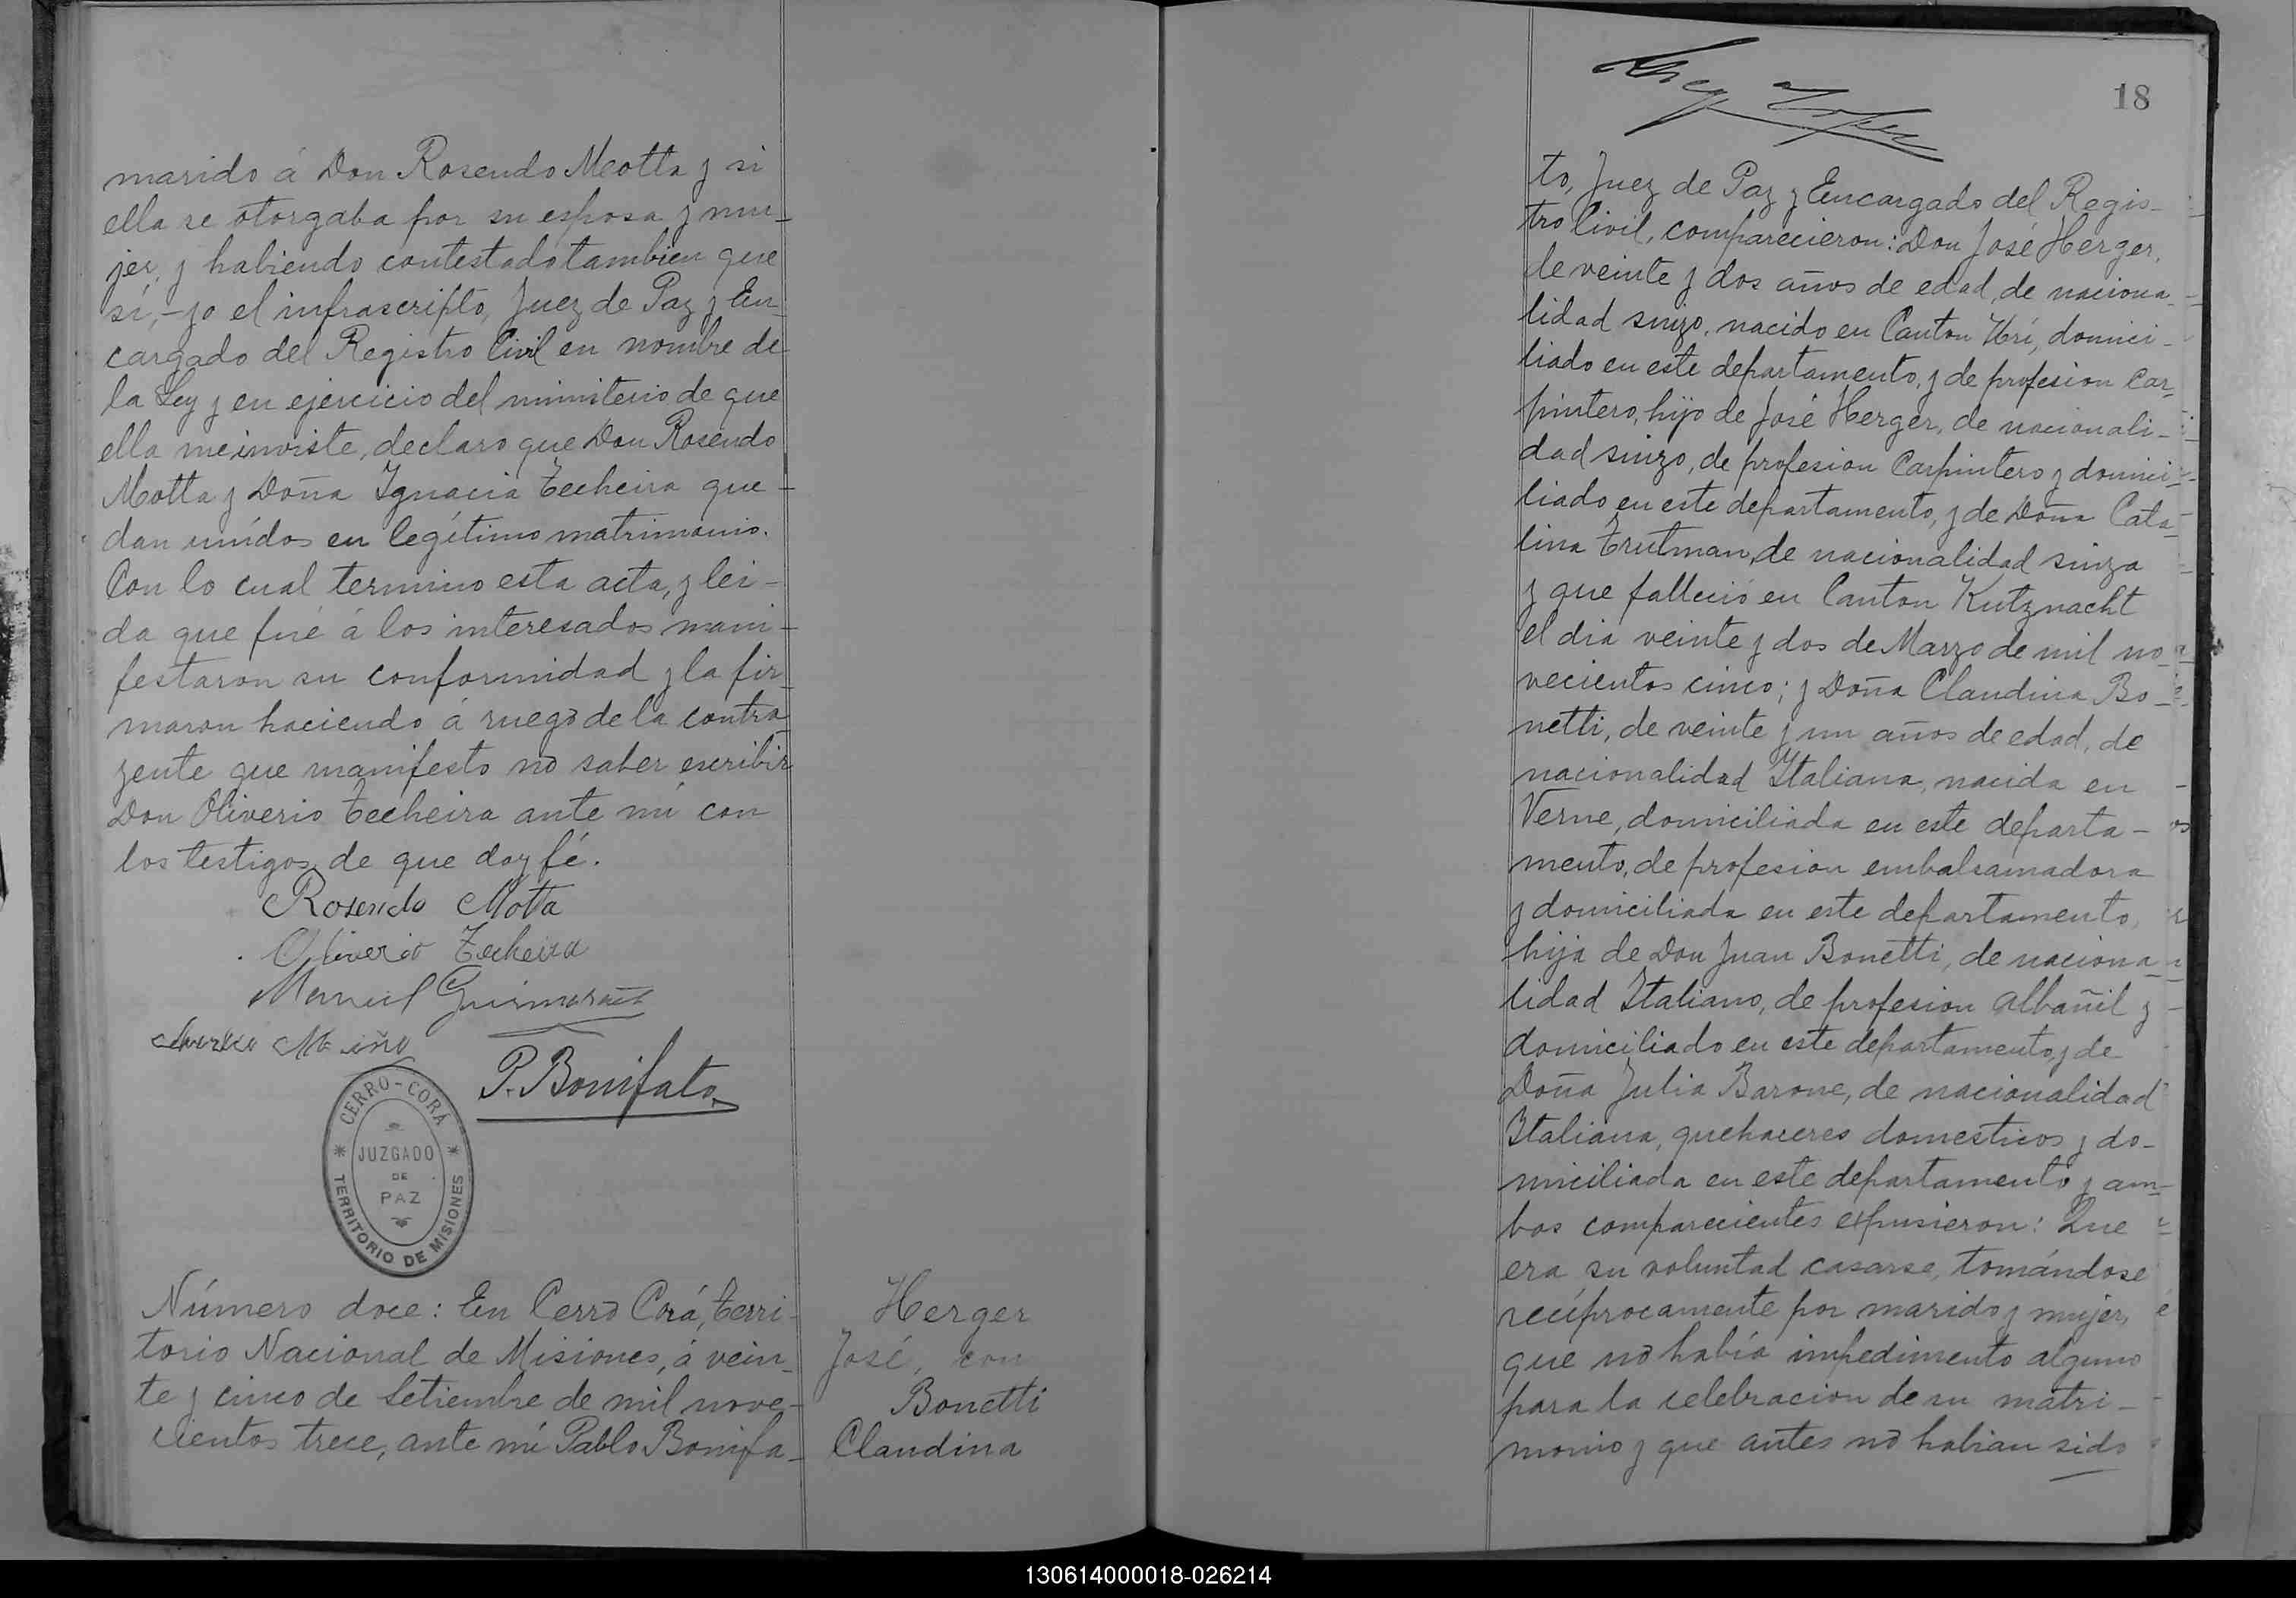 marido á Don Rosendo Motta y si
ella se otorgaba por su esposa y mu-
jer, y habiendo contestado tambien que
sí, - yo el infrascripto, Juez de Paz y En-
cargado del Registro Civil en nombre de
la Ley y en ejercicio del ministerio de que
ella me inviste, declaro que Don Rosendo
Motta y Doña Ignacia Techeira que-
dan unídos en legítimo matrimonio.
Con lo cual termino esta acta, y lei-
da que fué á los interesados mani-
festaron su conformidad y la fir-
maron haciendo á ruego de la contra-
yente que manifesto no saber escribir
Don Oliverio Techeira ante mí con
los testigos de que doy fé.
Rosendo Mota
Oliverio Techeira
Manuel
P. Bonifato
CERRO-CORÁ
JUZGADO
DE
PAZ
TERRITORIO DE MISIONES
Número doce: En Cerro Corá, Terri-
torio Nacional de Misiones, á vein-
te y cinco de Setiembre de mil nove-
cientos trece, ante mí Pablo Bonifa-
Herger
José, con
Bonetti
Claudina
18
to, Juez de Paz y Encargado del Regis-
tro Civil, comparecieron: Don José Herger,
de veinte y dos años de edad, de naciona-
lidad suizo, nacido en Canton Uri, domici-
liado en este departamento, y de profesion Car-
pintero, hijo de José Herger, de nacionali-
dad suizo, de profesion Carpintero y domici-
liado en este departamento, y de Doña Cata-
lina Trutman, de nacionalidad suiza
y que falleció en Canton Kutznacht
el dia veinte y dos de Marzo de mil no-
vecientos cinco; y Doña Claudina Bo-
netti, de veinte y un años de edad, de
nacionalidad Italiana, nacida en
Verne, domiciliada en este departa-
mento, de profesion embalsamadora
y domiciliada en este departamento,
hija de Don Juan Bonetti, de naciona-
lidad Italiano, de profesion albañil y
domiciliado en este departamento, y de
Doña Julia Barone, de nacionalidad
Italiana, quehaceres domesticos y do-
miciliada en este departamento y am-
bos comparecientes expusieron: Que
era su voluntad casarse, tomándose
recíprocamente por marido y mujer,
que no había impedimento alguno
para la celebracion de su matri-
monio y que antes no habian sido
130614000018-026214